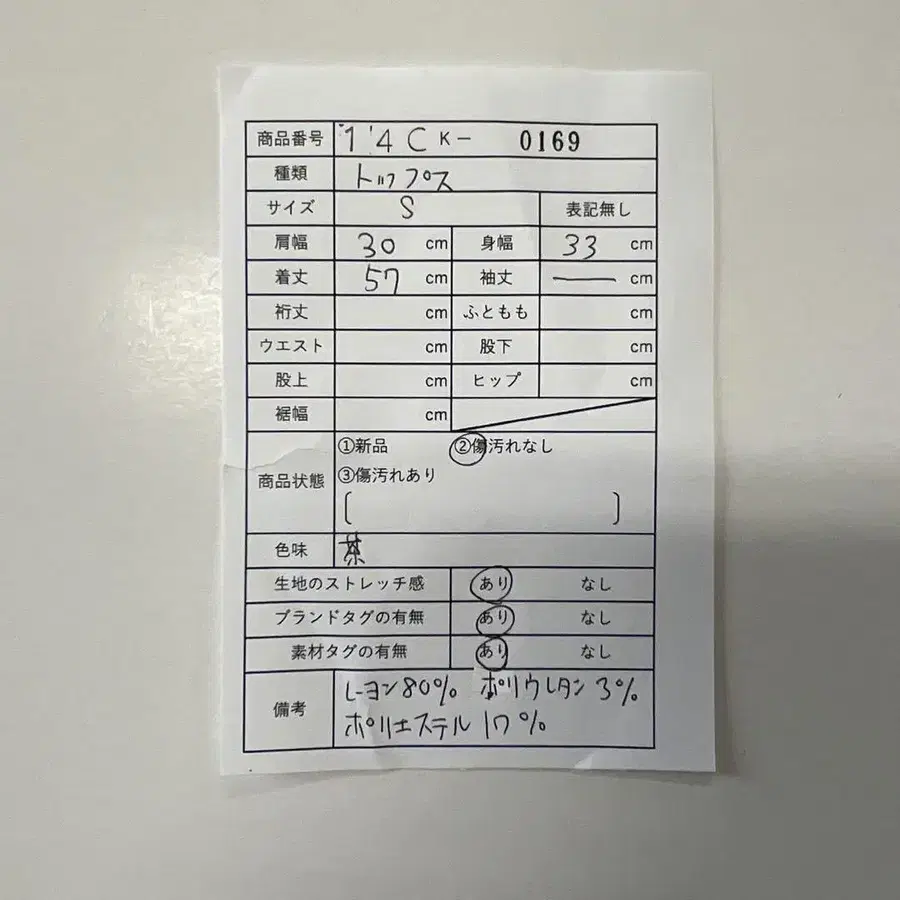 商品番号 1'4C K- 0169
種類 トップス
サイズ S 表記無し
肩幅 30 cm 身幅 33 cm
着丈 57 cm 袖丈 — cm
裄丈 cm ふともも cm
ウエスト cm 股下 cm
股上 cm ヒップ cm
裾幅 cm
商品状態 ①新品 ②傷汚れなし
③傷汚れあり
[ ]
色味 茶
生地のストレッチ感 あり なし
ブランドタグの有無 あり なし
素材タグの有無 あり なし
備考 レーヨン80% ポリウレタン3%
ポリエステル17%